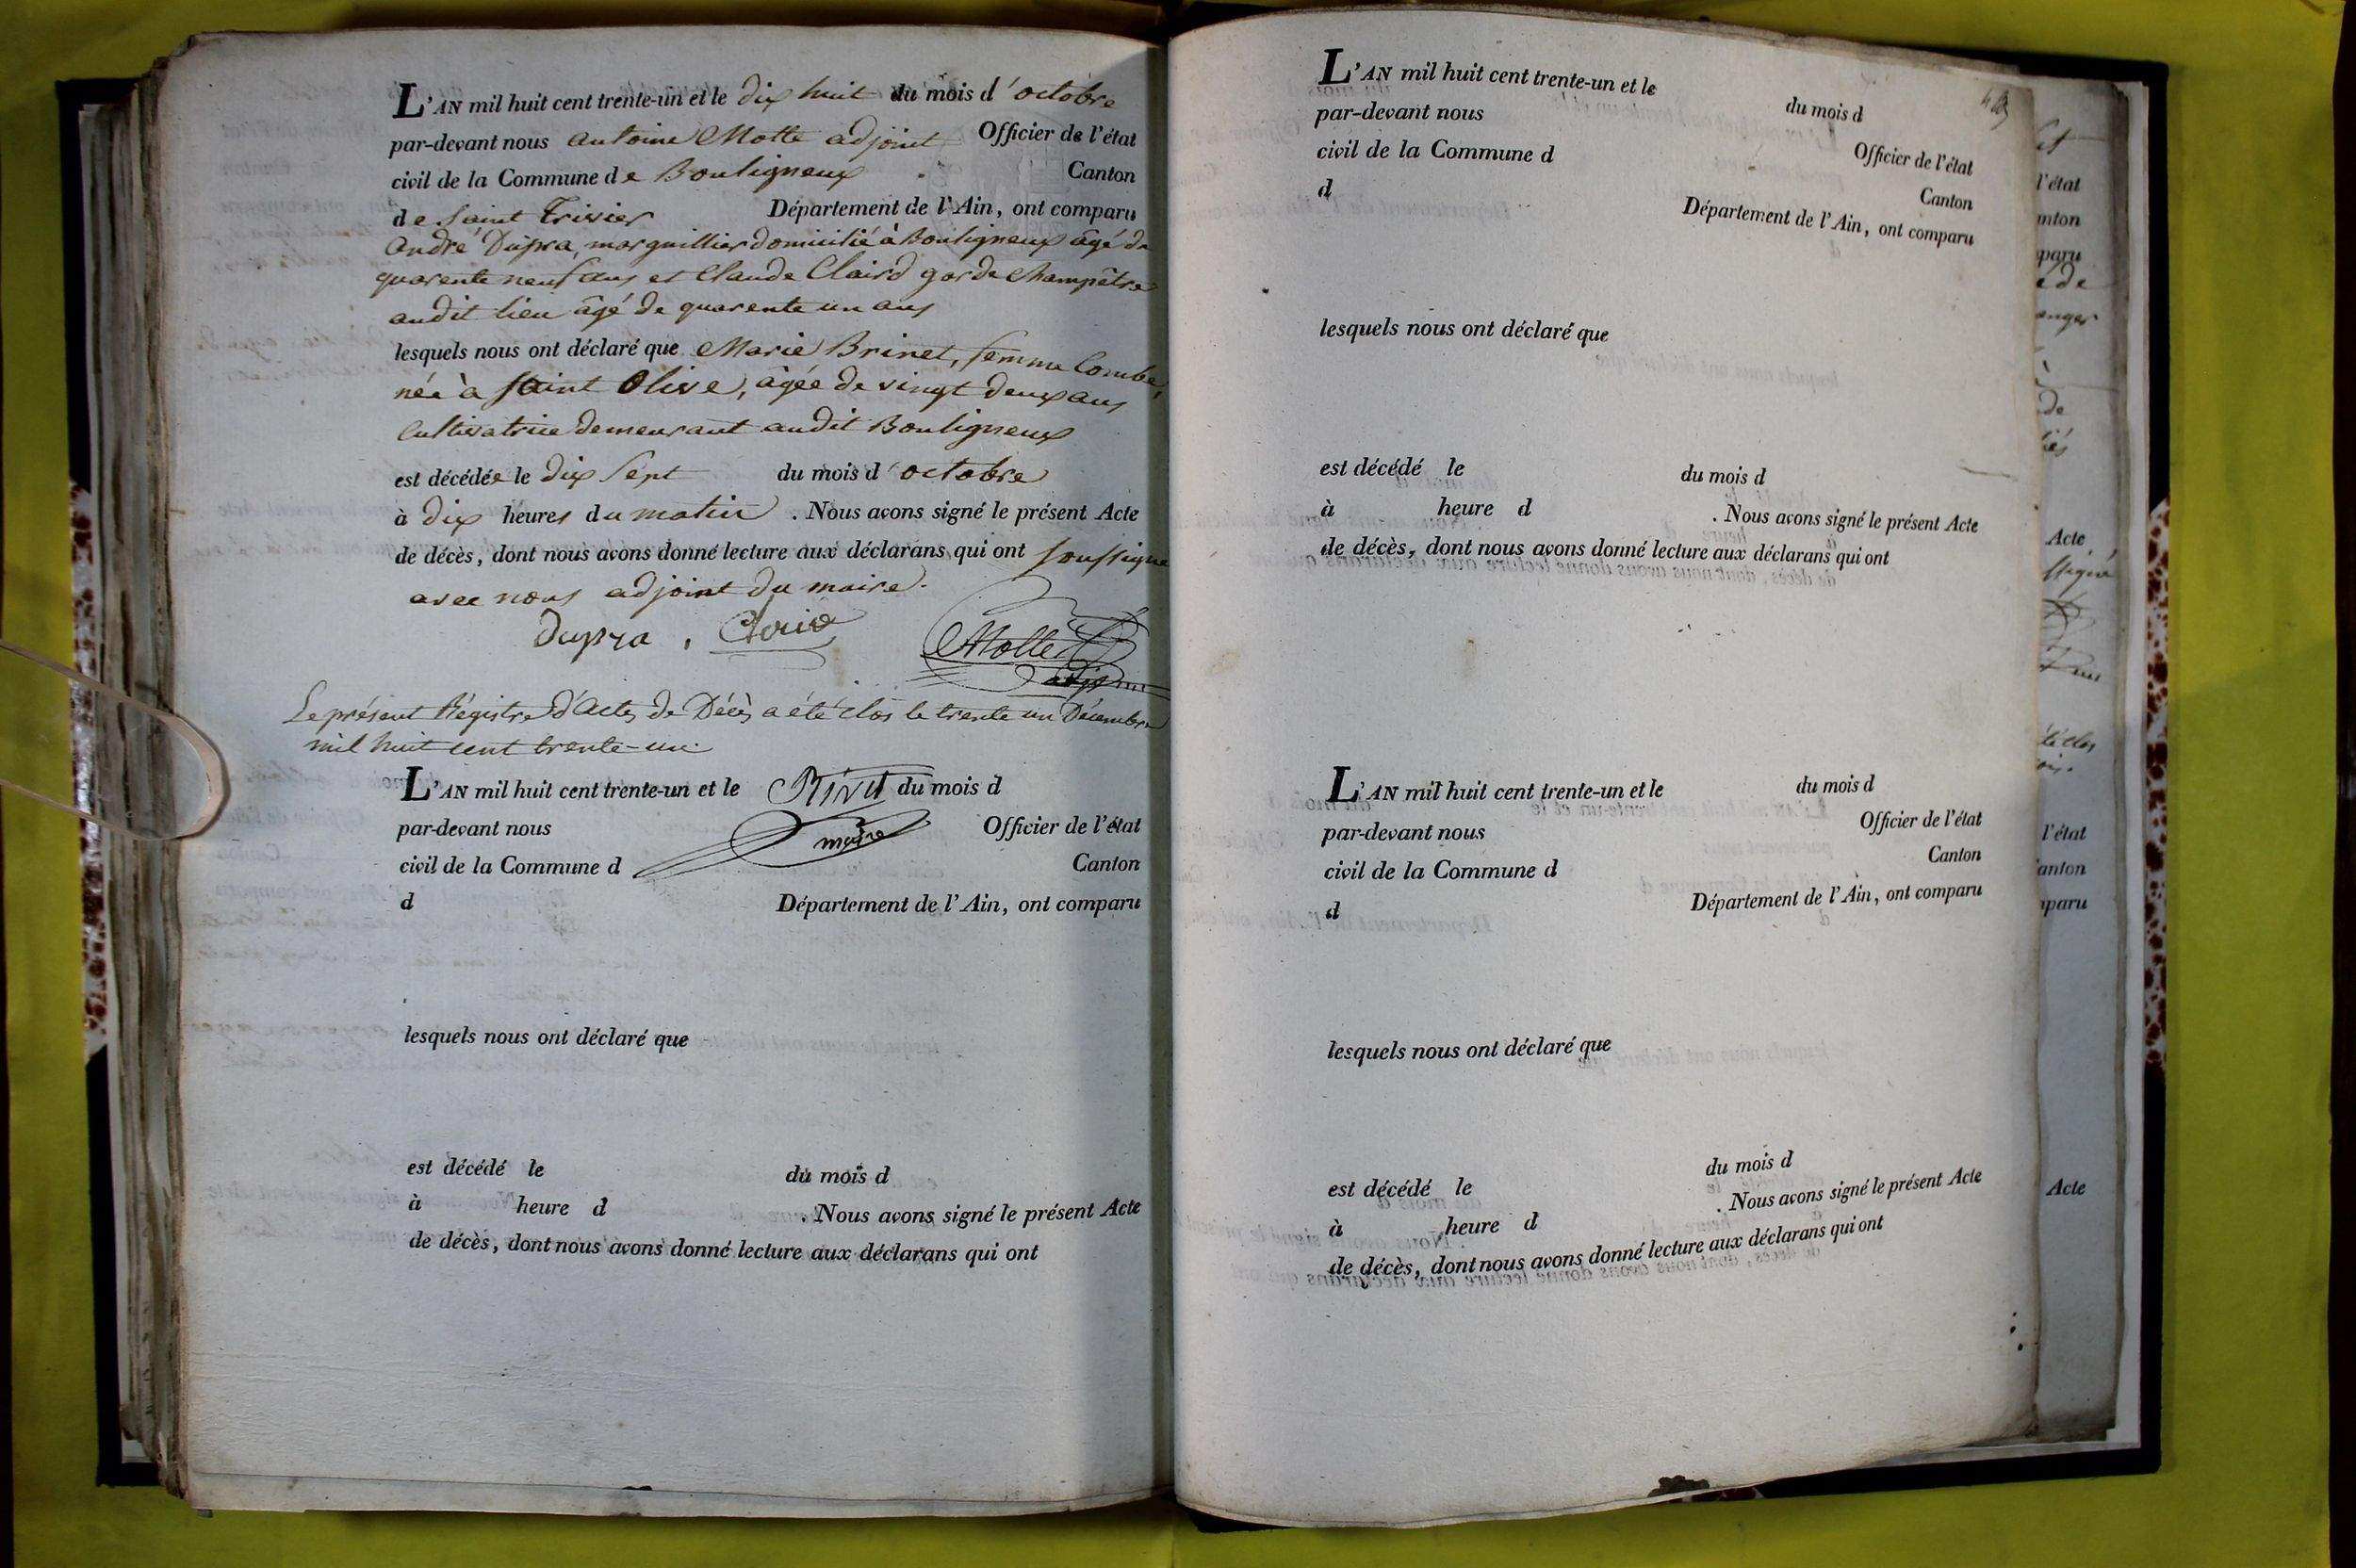 L'AN mil huit cent trente-un et le dix huit du mois d'octobre
par-devant nous antoine Motte adjoint Officier de l'état
civil de la Commune de Bouligneux Canton
de Saint Trivier Département de l'Ain, ont comparu
André Dupra, marguillier domicilié à Bouligneux âgé de
quarente neuf ans et Claude Claird garde champêtre
audit lieu âgé de quarente un ans
lesquels nous ont déclaré que Marie Brinet, femme Combe,
née à Saint Olive, âgée de vingt deux ans
Cultivatrice demeurant audit Bouligneux
est décédée le dix sept du mois d'octobre
à dix heures du matin . Nous avons signé le présent Acte
de décès, dont nous avons donné lecture aux déclarans qui ont soussigné
avec nous adjoint du maire.
Dupra, Motte
Le présent Régistre d'Actes de Décès a été clos le trente un Décembre
mil huit cent trente-un.
L'AN mil huit cent trente-un et le du mois d
par-devant nous maire Officier de l'état
civil de la Commune d Canton
d Département de l'Ain, ont comparu
lesquels nous ont déclaré que
est décédé le du mois d
à heure d . Nous avons signé le présent Acte
de décès, dont nous avons donné lecture aux déclarans qui ont
L'AN mil huit cent trente-un et le du mois d
par-devant nous Officier de l'état
civil de la Commune d Canton
d Département de l'Ain, ont comparu
lesquels nous ont déclaré que
est décédé le du mois d
à heure d . Nous avons signé le présent Acte
de décès, dont nous avons donné lecture aux déclarans qui ont
L'AN mil huit cent trente-un et le du mois d
par-devant nous Officier de l'état
civil de la Commune d Canton
d Département de l'Ain, ont comparu
lesquels nous ont déclaré que
est décédé le du mois d
à heure d . Nous avons signé le présent Acte
de décès, dont nous avons donné lecture aux déclarans qui ont
l'état
Acte
l'état
Acte